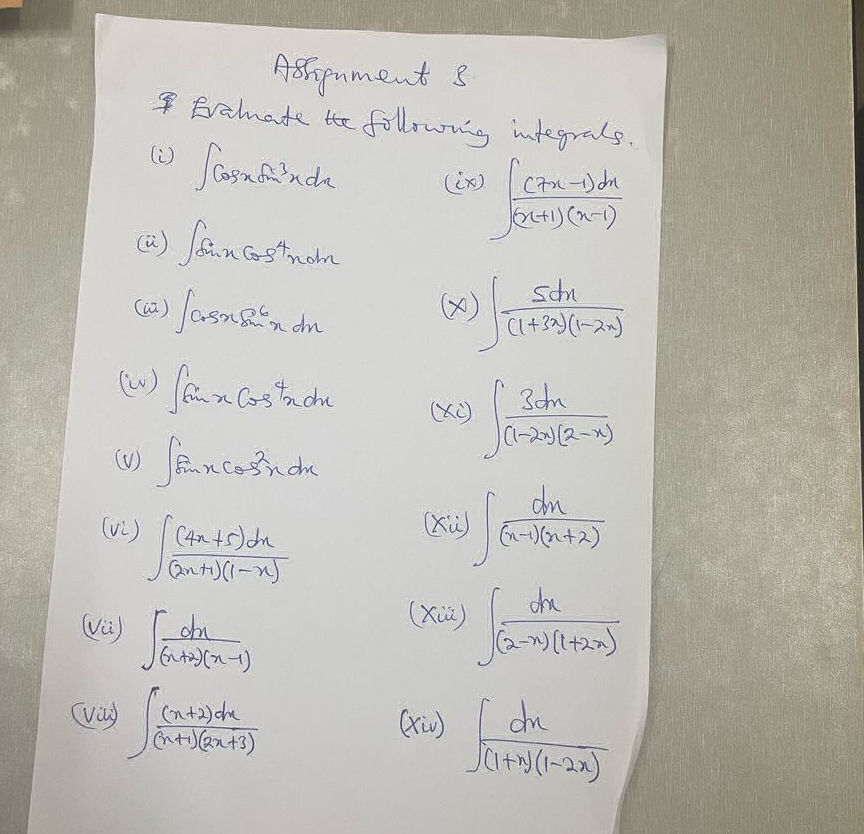 Assignment 3
Evaluate the following integrals.
(i) ∫cosx sin³x dx
(ii) ∫sinx cos⁴x dx
(iii) ∫cosx sin⁶x dx
(iv) ∫sinx cos⁴x dx
(v) ∫sinx cos²x dx
(vi) ∫(4x+5)dx / (2x+1)(1-x)
(vii) ∫dx / (x+2)(x-1)
(viii) ∫(x+2)dx / (x+1)(2x+3)
(ix) ∫(7x-1)dx / (x+1)(x-1)
(x) ∫5dx / (1+3x)(1-2x)
(xi) ∫3dx / (1-2x)(2-x)
(xii) ∫dx / (x-1)(x+2)
(xiii) ∫dx / (2-x)(1+2x)
(xiv) ∫dx / (1+x)(1-2x)